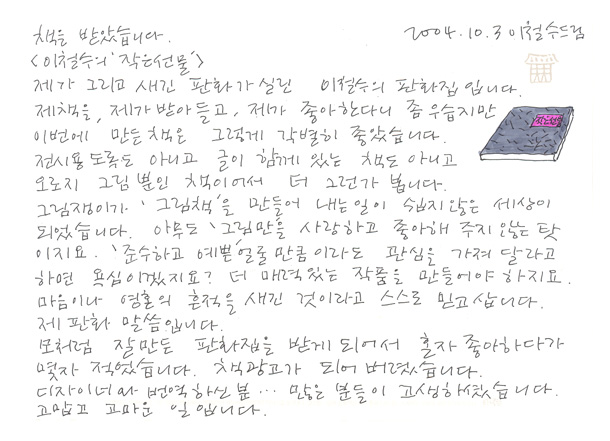 2004.10.3 이철수드림
책을 받았습니다.
<이철수의 '작은선물'>
제가 그리고 새긴 판화가 실린 이철수의 판화집입니다.
제책을, 제가받아들고, 제가 좋아한다니 좀 우습지만
이번에 만든책은 그렇게 각별히 좋았습니다.
전시용 도록도 아니고 글이 함께 있는 책도 아니고
오로지 그림뿐인 책이어서 더 그런가 봅니다.
그림쟁이가 '그림책'을 만들어 내는일이 쉽지않은 세상이
되었습니다. 아무도 '그림만'을 사랑하고 좋아해 주지 않는 탓
이지요. '준수하고 예쁜' 얼굴만큼이라도 관심을 가져 달라고
하면 욕심이겠지요? 더 매력있는 작품을 만들어야 하지요.
마음이나 영혼의 흔적을 새긴 것이라고 스스로 믿고삽니다.
제 판화 말씀입니다.
모처럼 잘만든 판화집을 받게 되어서 혼자 좋아하다가
몇자 적었습니다. 책광고가 되어 버렸습니다.
디자이너와 번역하신분... 많은 분들이 고생하셨습니다.
고맙고 고마운 일입니다.